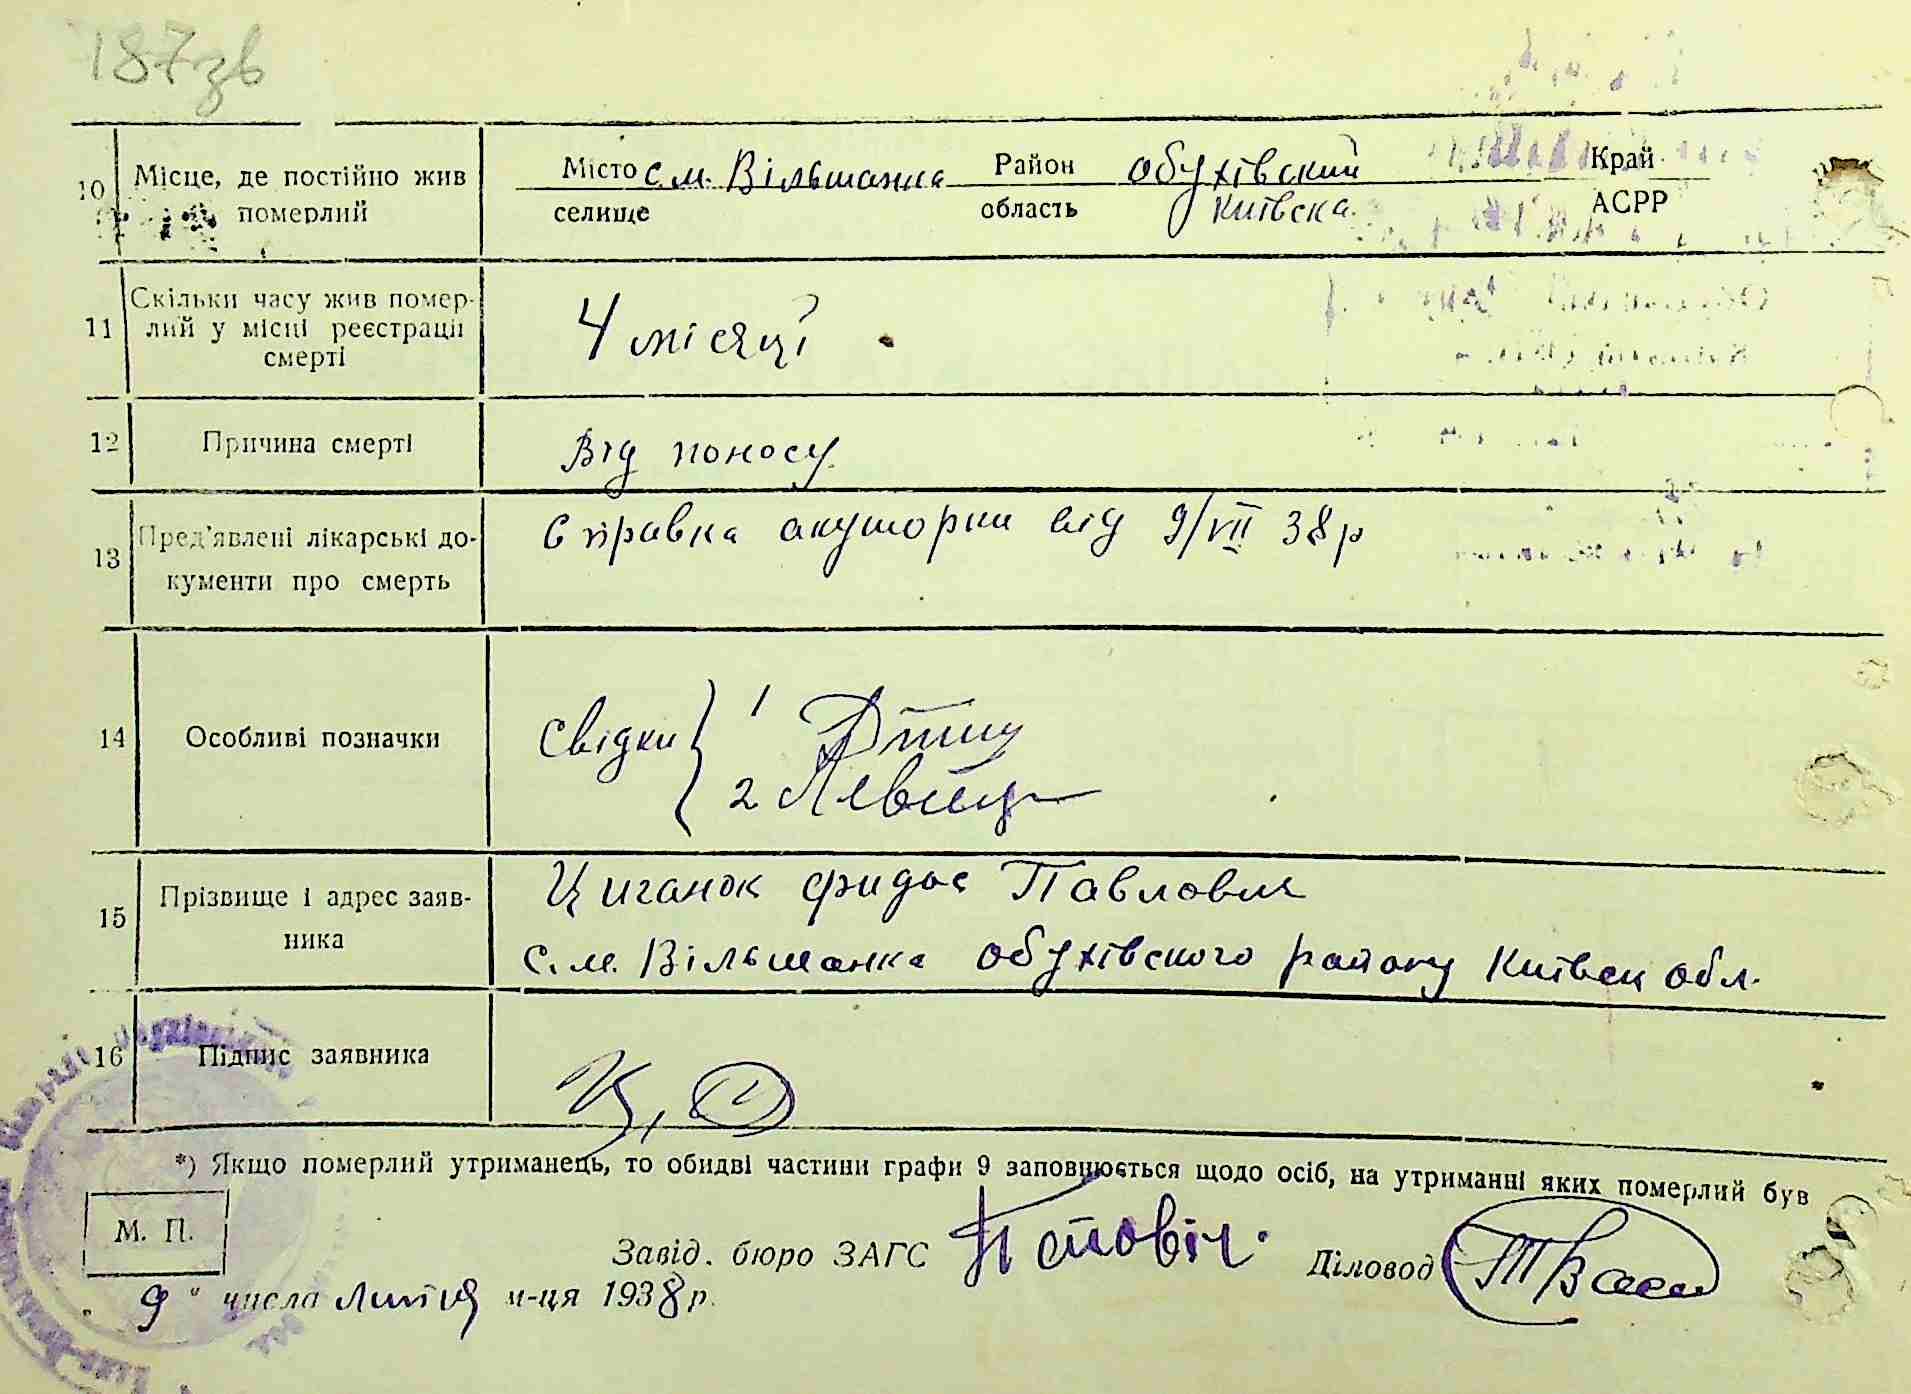 187зв
10 Місце, де постійно жив померлий
Місто с.м. Вільшанка Район обухівский Край
селище область Київска АСРР
11 Скільки часу жив помер-
лий у місці реєстрації
смерті
4 місяці
12 Причина смерті Від поносу
13 Пред'явлені лікарські до-
кументи про смерть
Справка акушорки від 9/VII 38р
14 Особливі позначки Свідки 1
2
15 Прізвище і адрес заяв-
ника
Циганок Павловна
с.м. Вільшанка обухівского району Київск обл.
16 Підпис заявника
*) Якщо померлий утриманець, то обидві частини графи 9 заповнюється щодо осіб, на утриманні яких померлий був
М. П.
Завід. бюро ЗАГС Діловод
„ 9 " числа липня м-ця 1938 р.